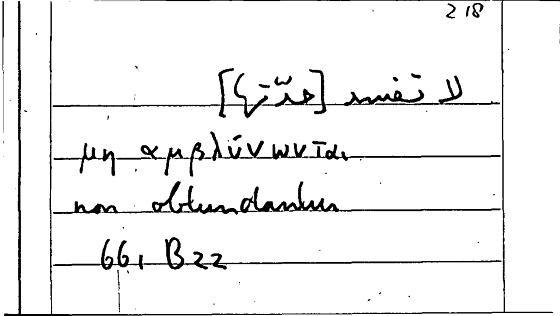 218
لا تفسد [حدّتها]
μη αμβλύνωνται
non obtundantur
66, B22